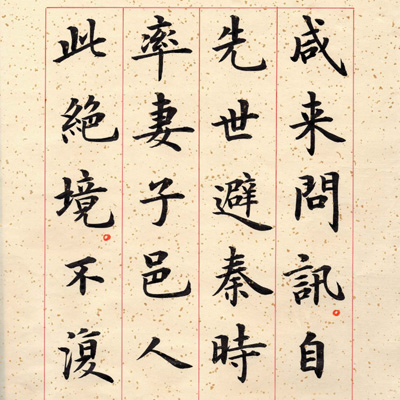 咸来問訊。自
先世避秦時
率妻子邑人
此絶境。不復